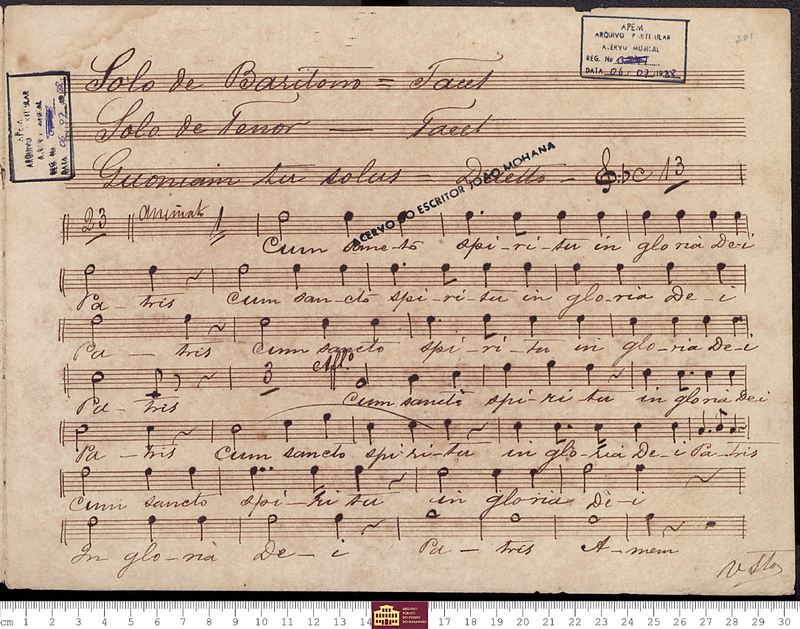 APEM
ARQUIVO PARTICULAR
ACERVO MUSICAL
REG. No
DATA 06.07.1988
201
APEM
ARQUIVO PARTICULAR
ACERVO MUSICAL
REG. No
DATA 06.07.1988
Solo de Baritono = Tacet
Solo de Tenor — Tacet
Quoniam tu solus = Duetto - C 13
ACERVO DO ESCRITOR JOÃO MOHANA
23 Animato
Cum sancto spi-ri-tu in gloria De-i
Pa-tris Cum san-cto spi-ri-tu in gloria De-i
Pa-tris Cum sancto spi-ri-tu in glo-ria De-i
3 Allº
Pa-tris Cum sancto spi-ri tu in gloria Dei
Pa-tris Cum sancto spi-ri-tu in glo-ria De-i Pa-tris
Cum sancto spi-ri tu in gloria De-i
In glo-ria De-i Pa-tris A-men
cm 1 2 3 4 5 6 7 8 9 10 11 12 13 14 16 17 18 19 20 21 22 23 24 25 26 27 28 29 30
ARQUIVO
PÚBLICO
DO ESTADO
DO MARANHÃO